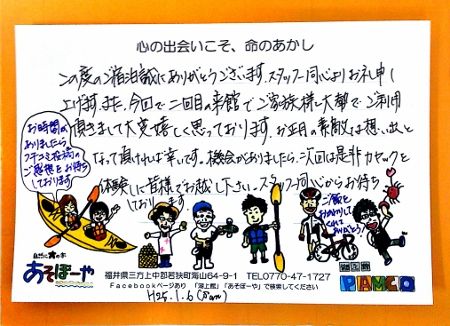 心の出会いこそ、命のあかし
この度のご宿泊誠にありがとうございます。スタッフ一同心よりお礼申し
上げます。また、今回で二回目の来館でご家族様と大勢でご利用
頂きまして大変嬉しく思っております。お正月の素敵な想い出と
なって頂ければ幸いです。機会がありましたら、次回は是非カヤックを
体験しに皆様でお越し下さい。スタッフ一同心からお待ち
しております。
お時間が
ありましたら
クチコミ投稿の
ご感想をお待ち
しております
ご飯を
おかわりして
くれて
ありがとう!
自然と育の木
あそぼーや
湖上館
PAMCO
福井県三方上中郡若狭町海山64-9-1 TEL0770-47-1727
Facebookページあり 「湖上館」「あそぼーや」で検索してください
H25.1.6(Sun)